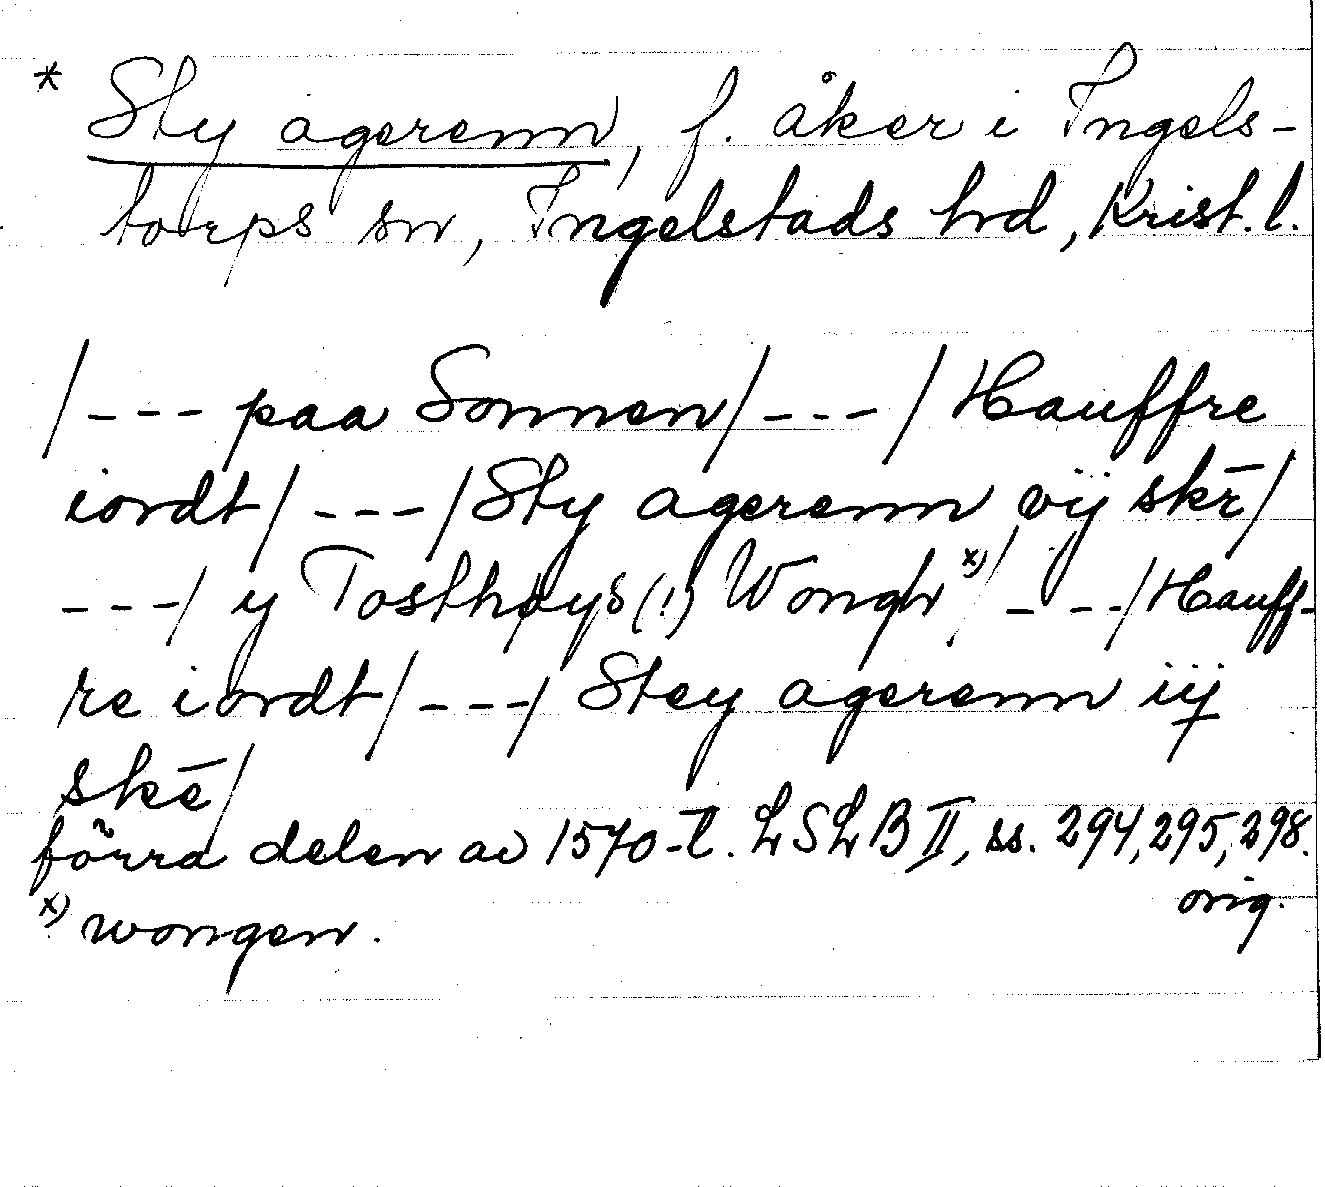 * Sty agerenn, f. åker i Ingels-
torps sn, Ingelstads hrd, Krist. l.
/--- paa Sonnen/---/Hauffre
iordt/---/Sty agerenn vij skē/
---/ y Tosthøys(!) Wongh x)/---/Hauff-
re iordt/---/ Stey agerenn iij
skē/
förra delen av 1570-t. LSLB II, ss. 294, 295, 298.
orig.
x) wongen.